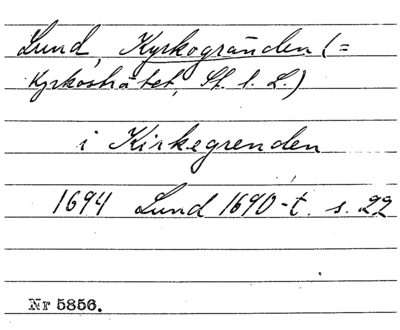 Lund, Kyrkogränden (=
Kyrkostråtet, St. l. L.)
i Kirkegrenden
1694 Lund 1690-t. s. 22
Nr 5856.